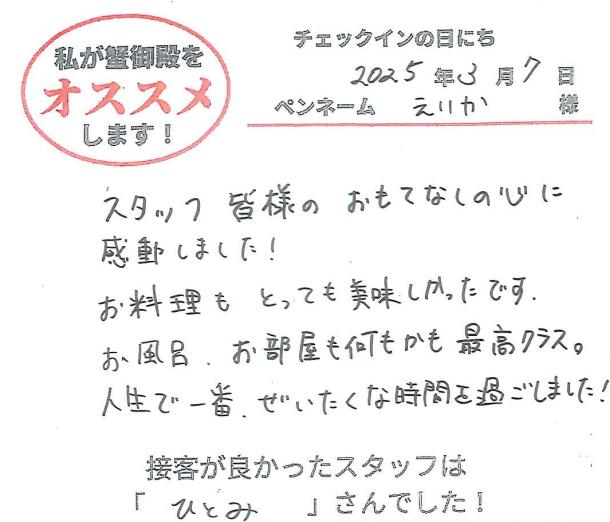 私が蟹御殿を
オススメ
します！
チェックインの日にち
2025年3月7日
ペンネーム えりか 様
スタッフ 皆様の おもてなしの心に
感動しました!
お料理も とっても美味しかったです.
お風呂、お部屋も何もかも最高クラス。
人生で一番、ぜいたくな時間を過ごしました!
接客が良かったスタッフは
「 ひとみ 」さんでした！